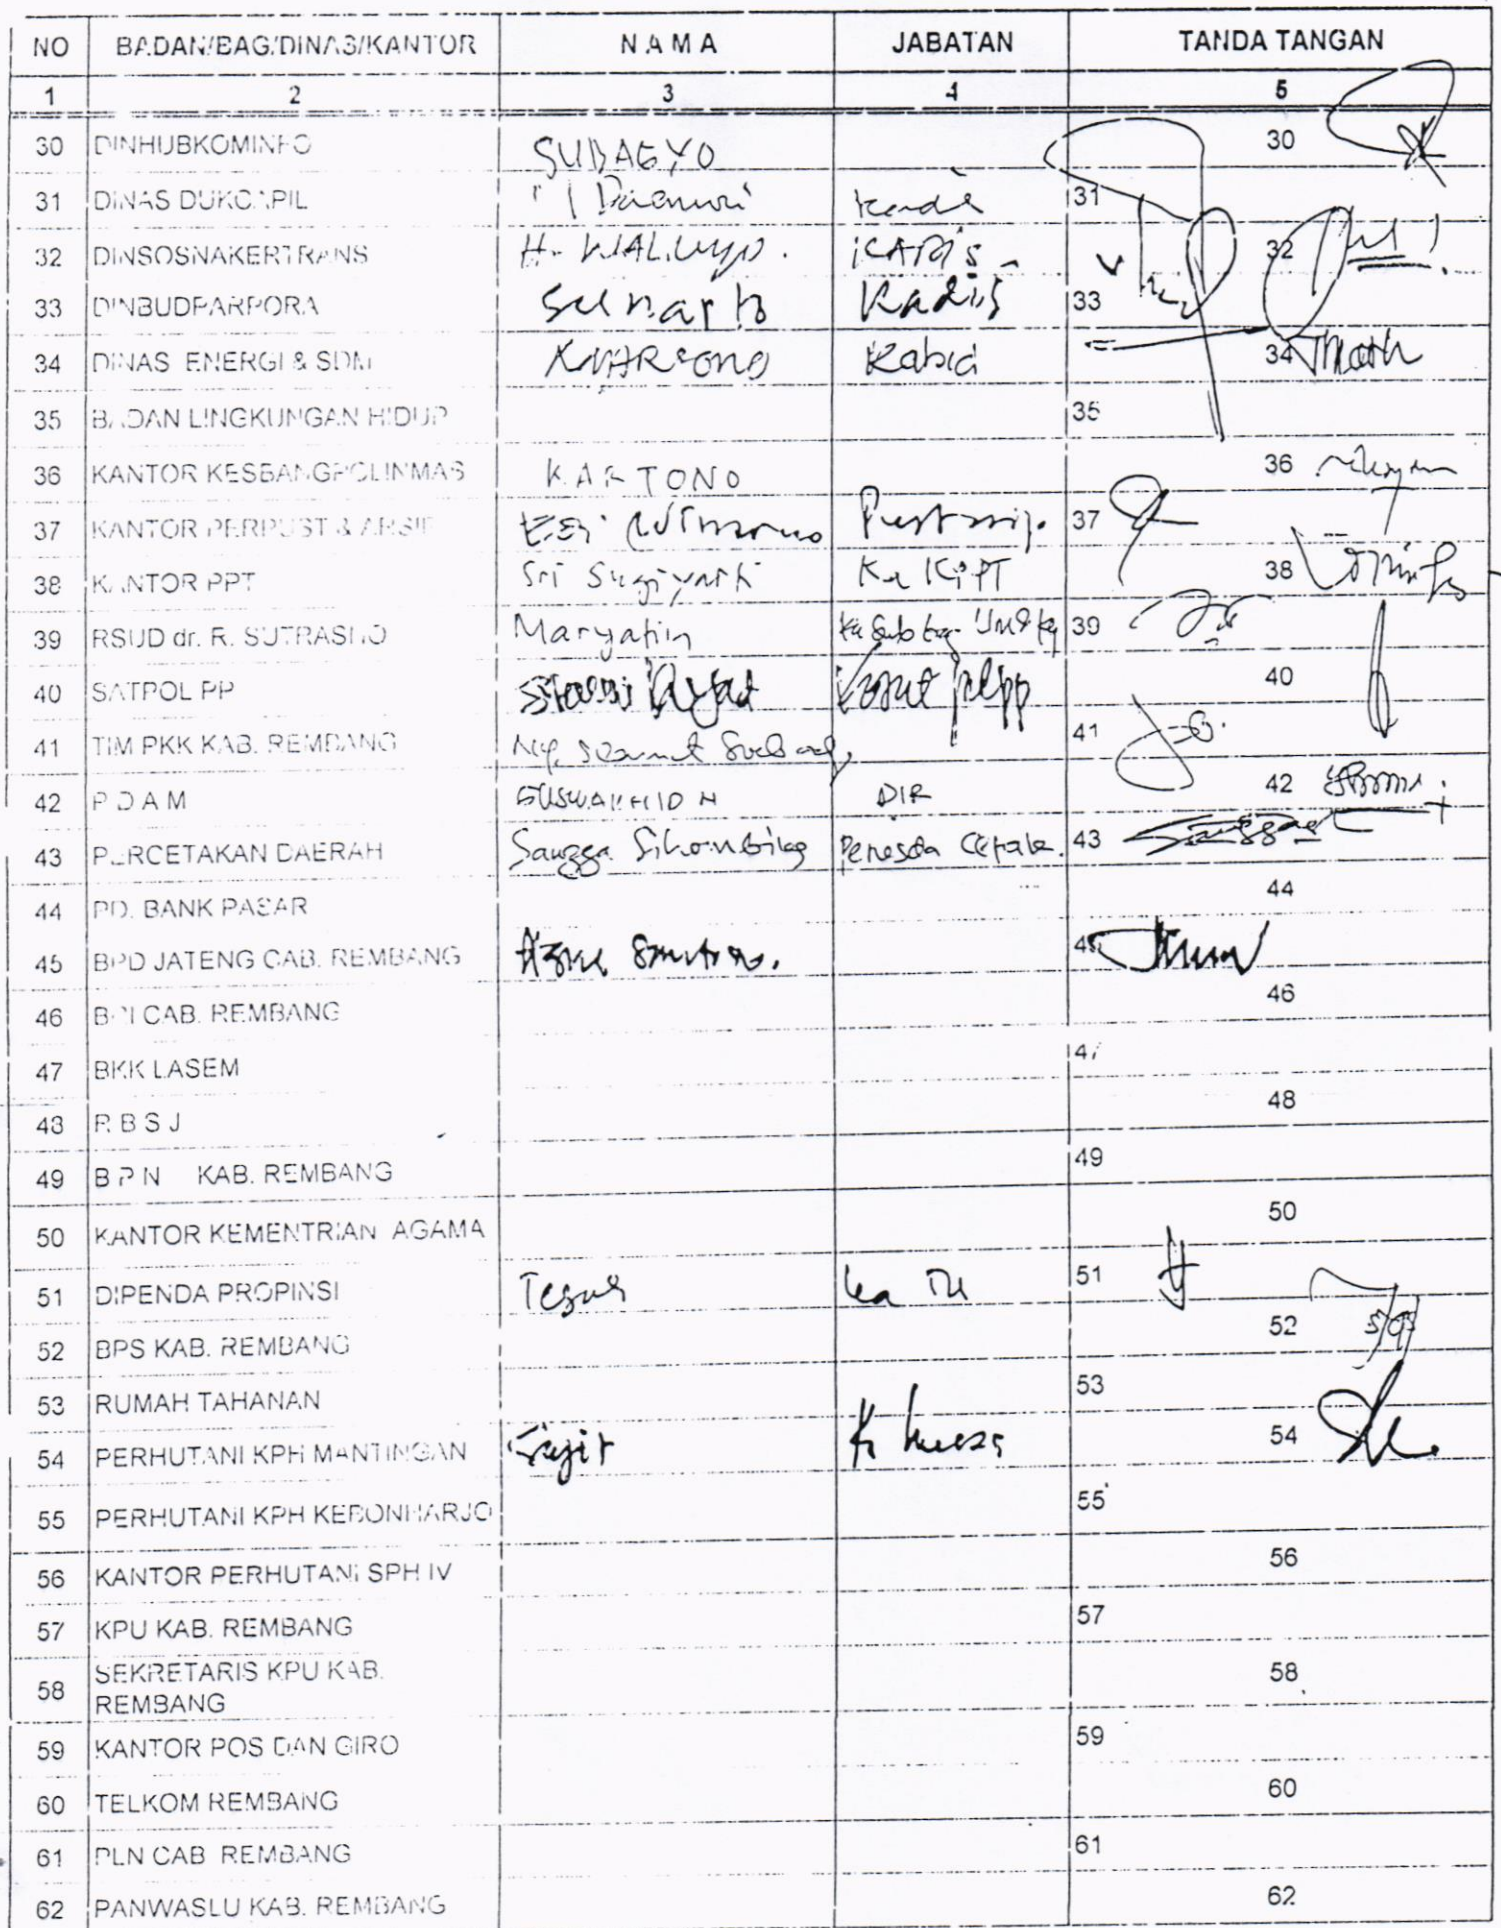 NO BADAN/BAG/DINAS/KANTOR N A M A JABATAN TANDA TANGAN
1 2 3 4 5
30 DINHUBKOMINFO SUBAGYO 30
31 DINAS DUKCAPIL 31
32 DINSOSNAKERTRANS H. WALUYO. KADIS 32
33 DINBUDPARPORA Sunarto Kadis 33
34 DINAS ENERGI & SDM Kabid 34
35 BADAN LINGKUNGAN HIDUP 35
36 KANTOR KESBANGPOLINMAS KARTONO 36
37 KANTOR PERPUST & ARSIP 37
38 KANTOR PPT Sri Sugiyarti Ka KPPT 38
39 RSUD dr. R. SUTRASNO Maryatin 39
40 SATPOL PP 40
41 TIM PKK KAB. REMBANG 41
42 P D A M DIR 42
43 PERCETAKAN DAERAH Sangga Sihombing 43
44 PD. BANK PASAR 44
45 BPD JATENG CAB. REMBANG 45
46 BNI CAB. REMBANG 46
47 BKK LASEM 47
48 R B S J 48
49 B P N KAB. REMBANG 49
50 KANTOR KEMENTRIAN AGAMA 50
51 DIPENDA PROPINSI Teguh 51
52 BPS KAB. REMBANG 52
53 RUMAH TAHANAN 53
54 PERHUTANI KPH MANTINGAN 54
55 PERHUTANI KPH KEBONHARJO 55
56 KANTOR PERHUTANI SPH IV 56
57 KPU KAB. REMBANG 57
58 SEKRETARIS KPU KAB. 58
REMBANG
59 KANTOR POS DAN GIRO 59
60 TELKOM REMBANG 60
61 PLN CAB REMBANG 61
62 PANWASLU KAB. REMBANG 62